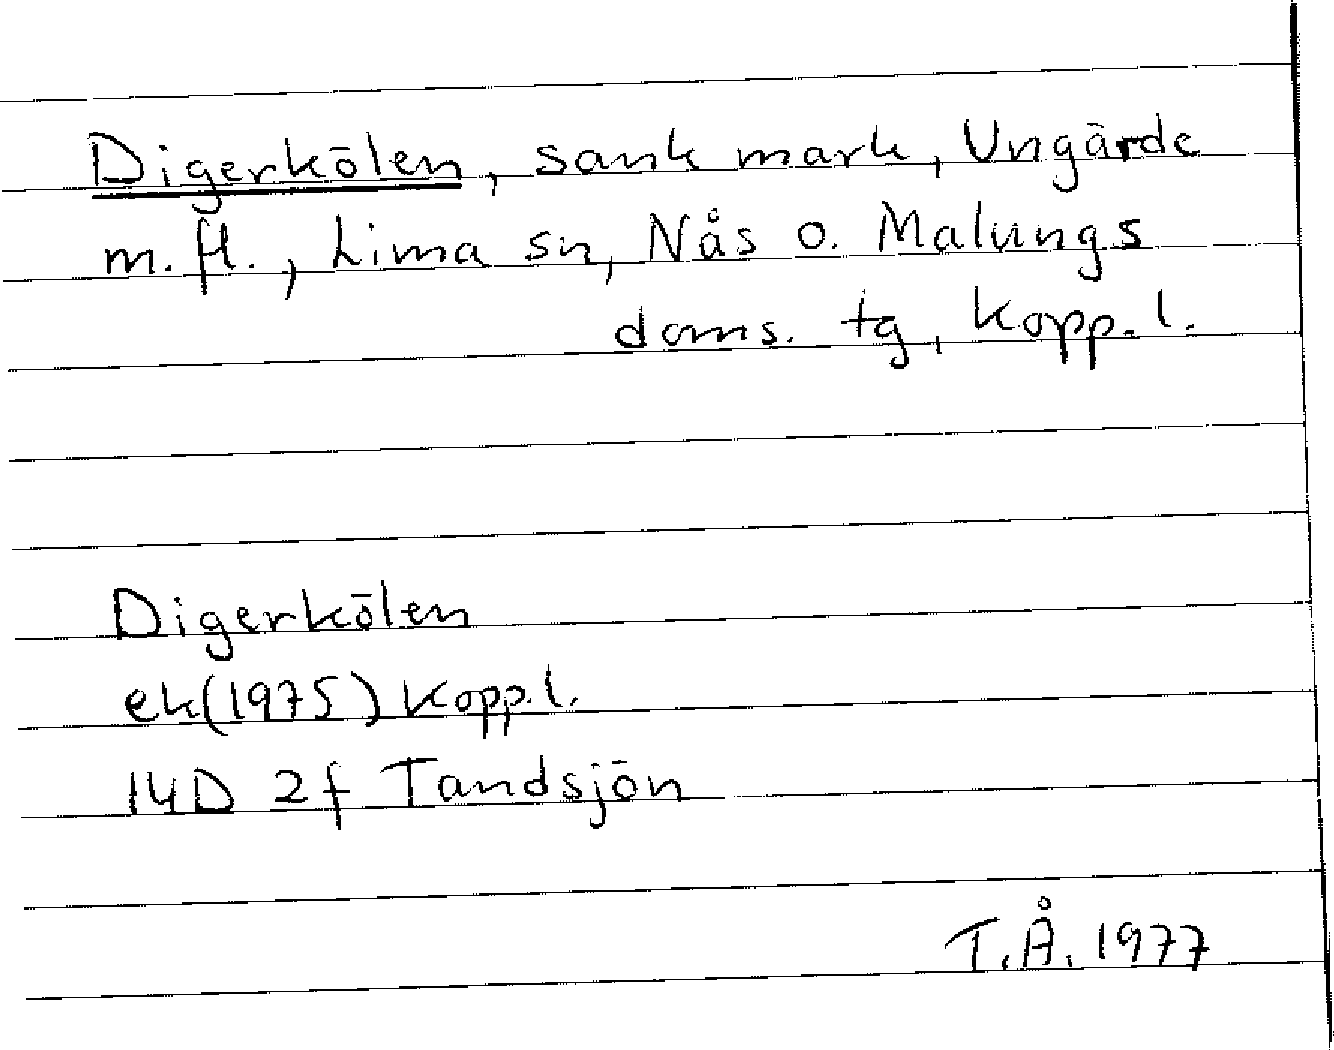 Digerkölen, sank mark, Ungärde
m.fl., Lima sn, Nås o. Malungs
doms. tg, Kopp.l.
Digerkölen
ek(1975) Kopp.l.
14D 2f Tandsjön
T.Å. 1977